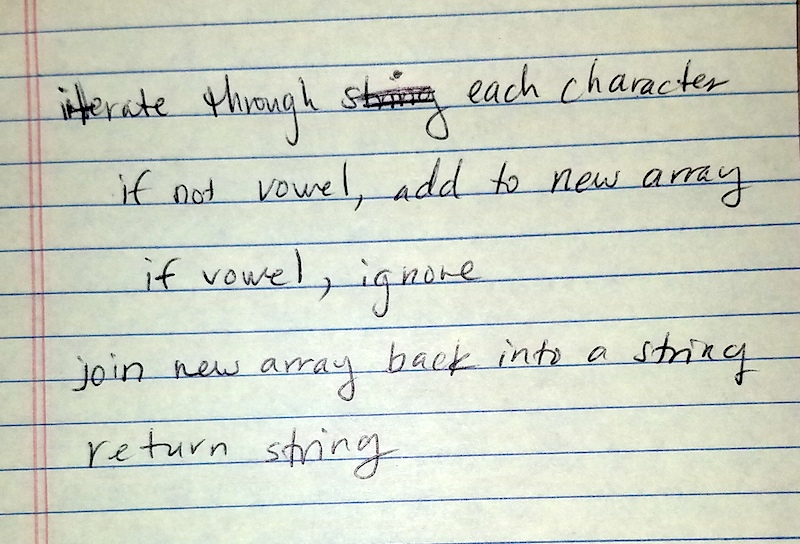 iterate through string each character
if not vowel, add to new array
if vowel, ignore
join new array back into a string
return string